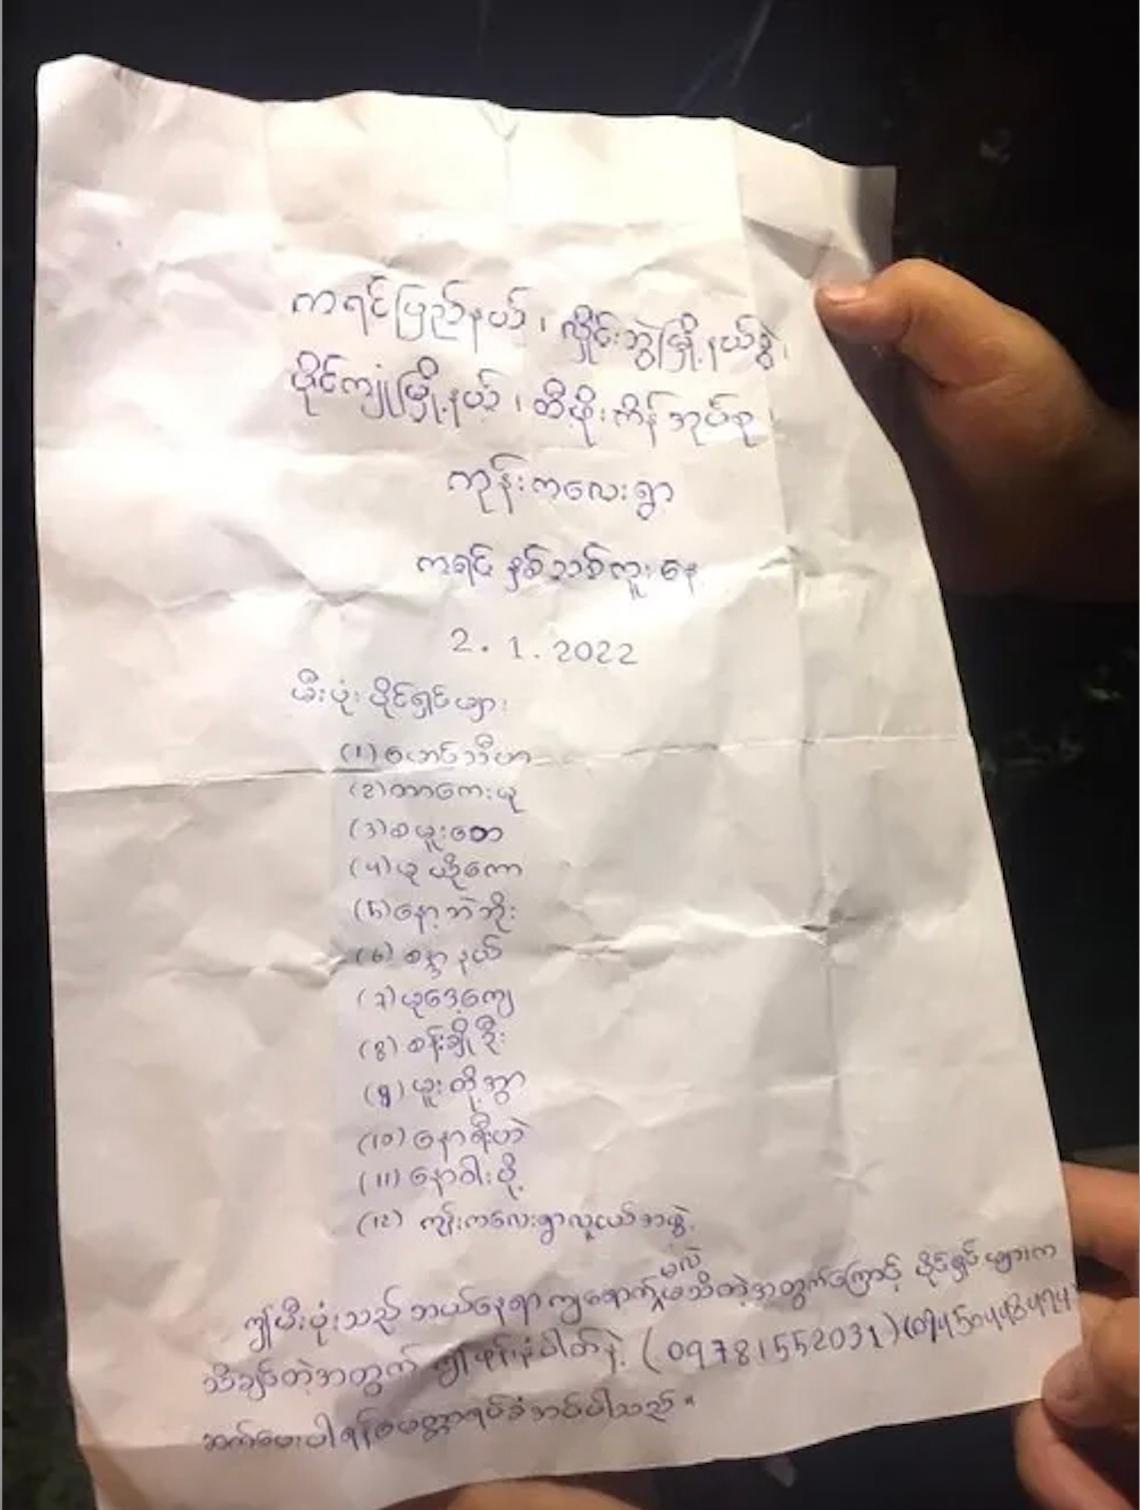 ကရင်ပြည်နယ်၊ လှိုင်းဘွဲမြို့နယ်ခွဲ၊
ပိုင်ကျုံမြို့နယ်၊ တီဖိုးကိန်အုပ်စု၊
ကုန်းကလေးရွာ
ကရင် နှစ်သစ်ကူးနေ့
2.1.2022
မီးပုံး ပိုင်ရှင်များ
(1) စောင်သီဟ
(2) တာကေးယု
(3) စမူးတော
(4) ယု ယိုကော
(5) နော့ဘဲဘိုး
(6) စန္ဒာနယ်
(7) ယုဒေ့ကျေ
(8) စန်းချိုဦး
(9) ယူးတို့အွာ
(10) နောစီးဟဲ
(11) နောဝါးဖို့
(12) ကုန်းကလေးရွာလူငယ်အဖွဲ့
ဤမီးပုံးသည် ဘယ်နေရာကျရောက်မလဲမသိတဲ့အတွက်ကြောင့် ပိုင်ရှင်များက
သိချင်တဲ့အတွက် ဤဖုန်းနံပါတ်နဲ့ (09781552031)
ဆက်ပေးပါရန်မေတ္တာရပ်ခံအပ်ပါသည်။